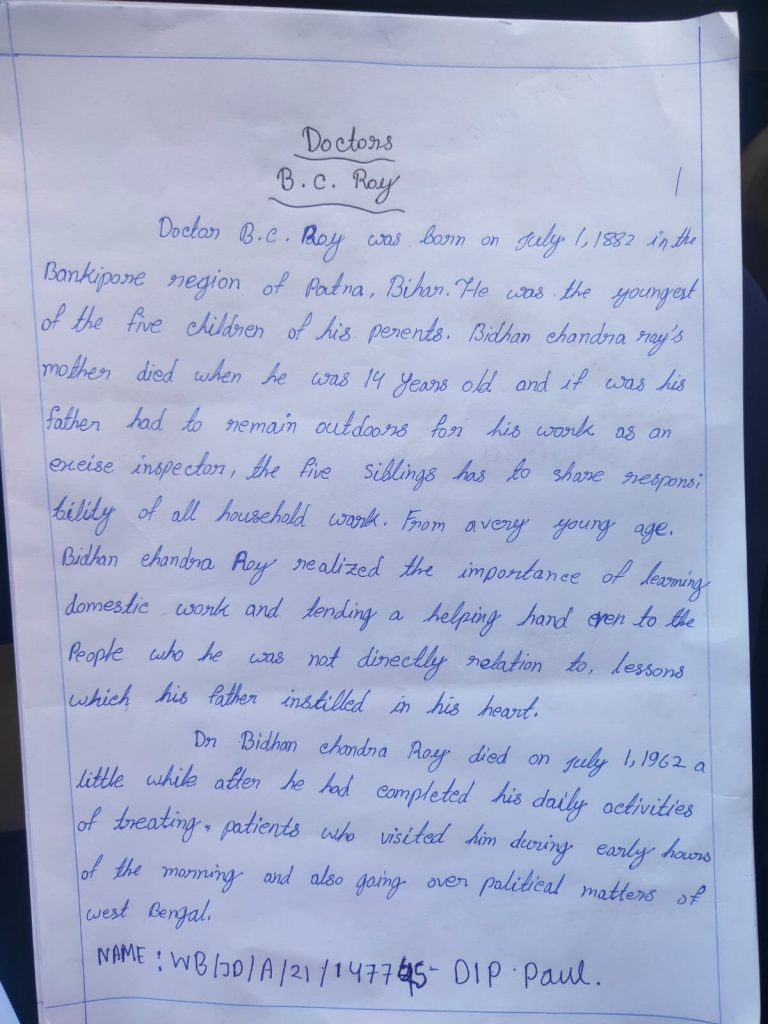 Doctors
B.C. Roy
Doctor B.C. Roy was born on July 1, 1882 in the
Bankipore region of Patna, Bihar. He was the youngest
of the five children of his perents. Bidhan chandra roy's
mother died when he was 14 years old and if was his
father had to remain outdoors for his work as an
exceise inspector, the five siblings has to share responsi
bility of all household work. From a very young age.
Bidhan chandra Roy realized the importance of learning
domestic work and lending a helping hand even to the
People who he was not directly relation to, lessons
which his father instilled in his heart.
Dr Bidhan chandra Roy died on July 1, 1962 a
little while after he had completed his daily activities
of treating, patients who visited him during early hours
of the morning and also going over political matters of
west Bengal.
NAME: WB/JD/A/21/147745- DIP Paul.